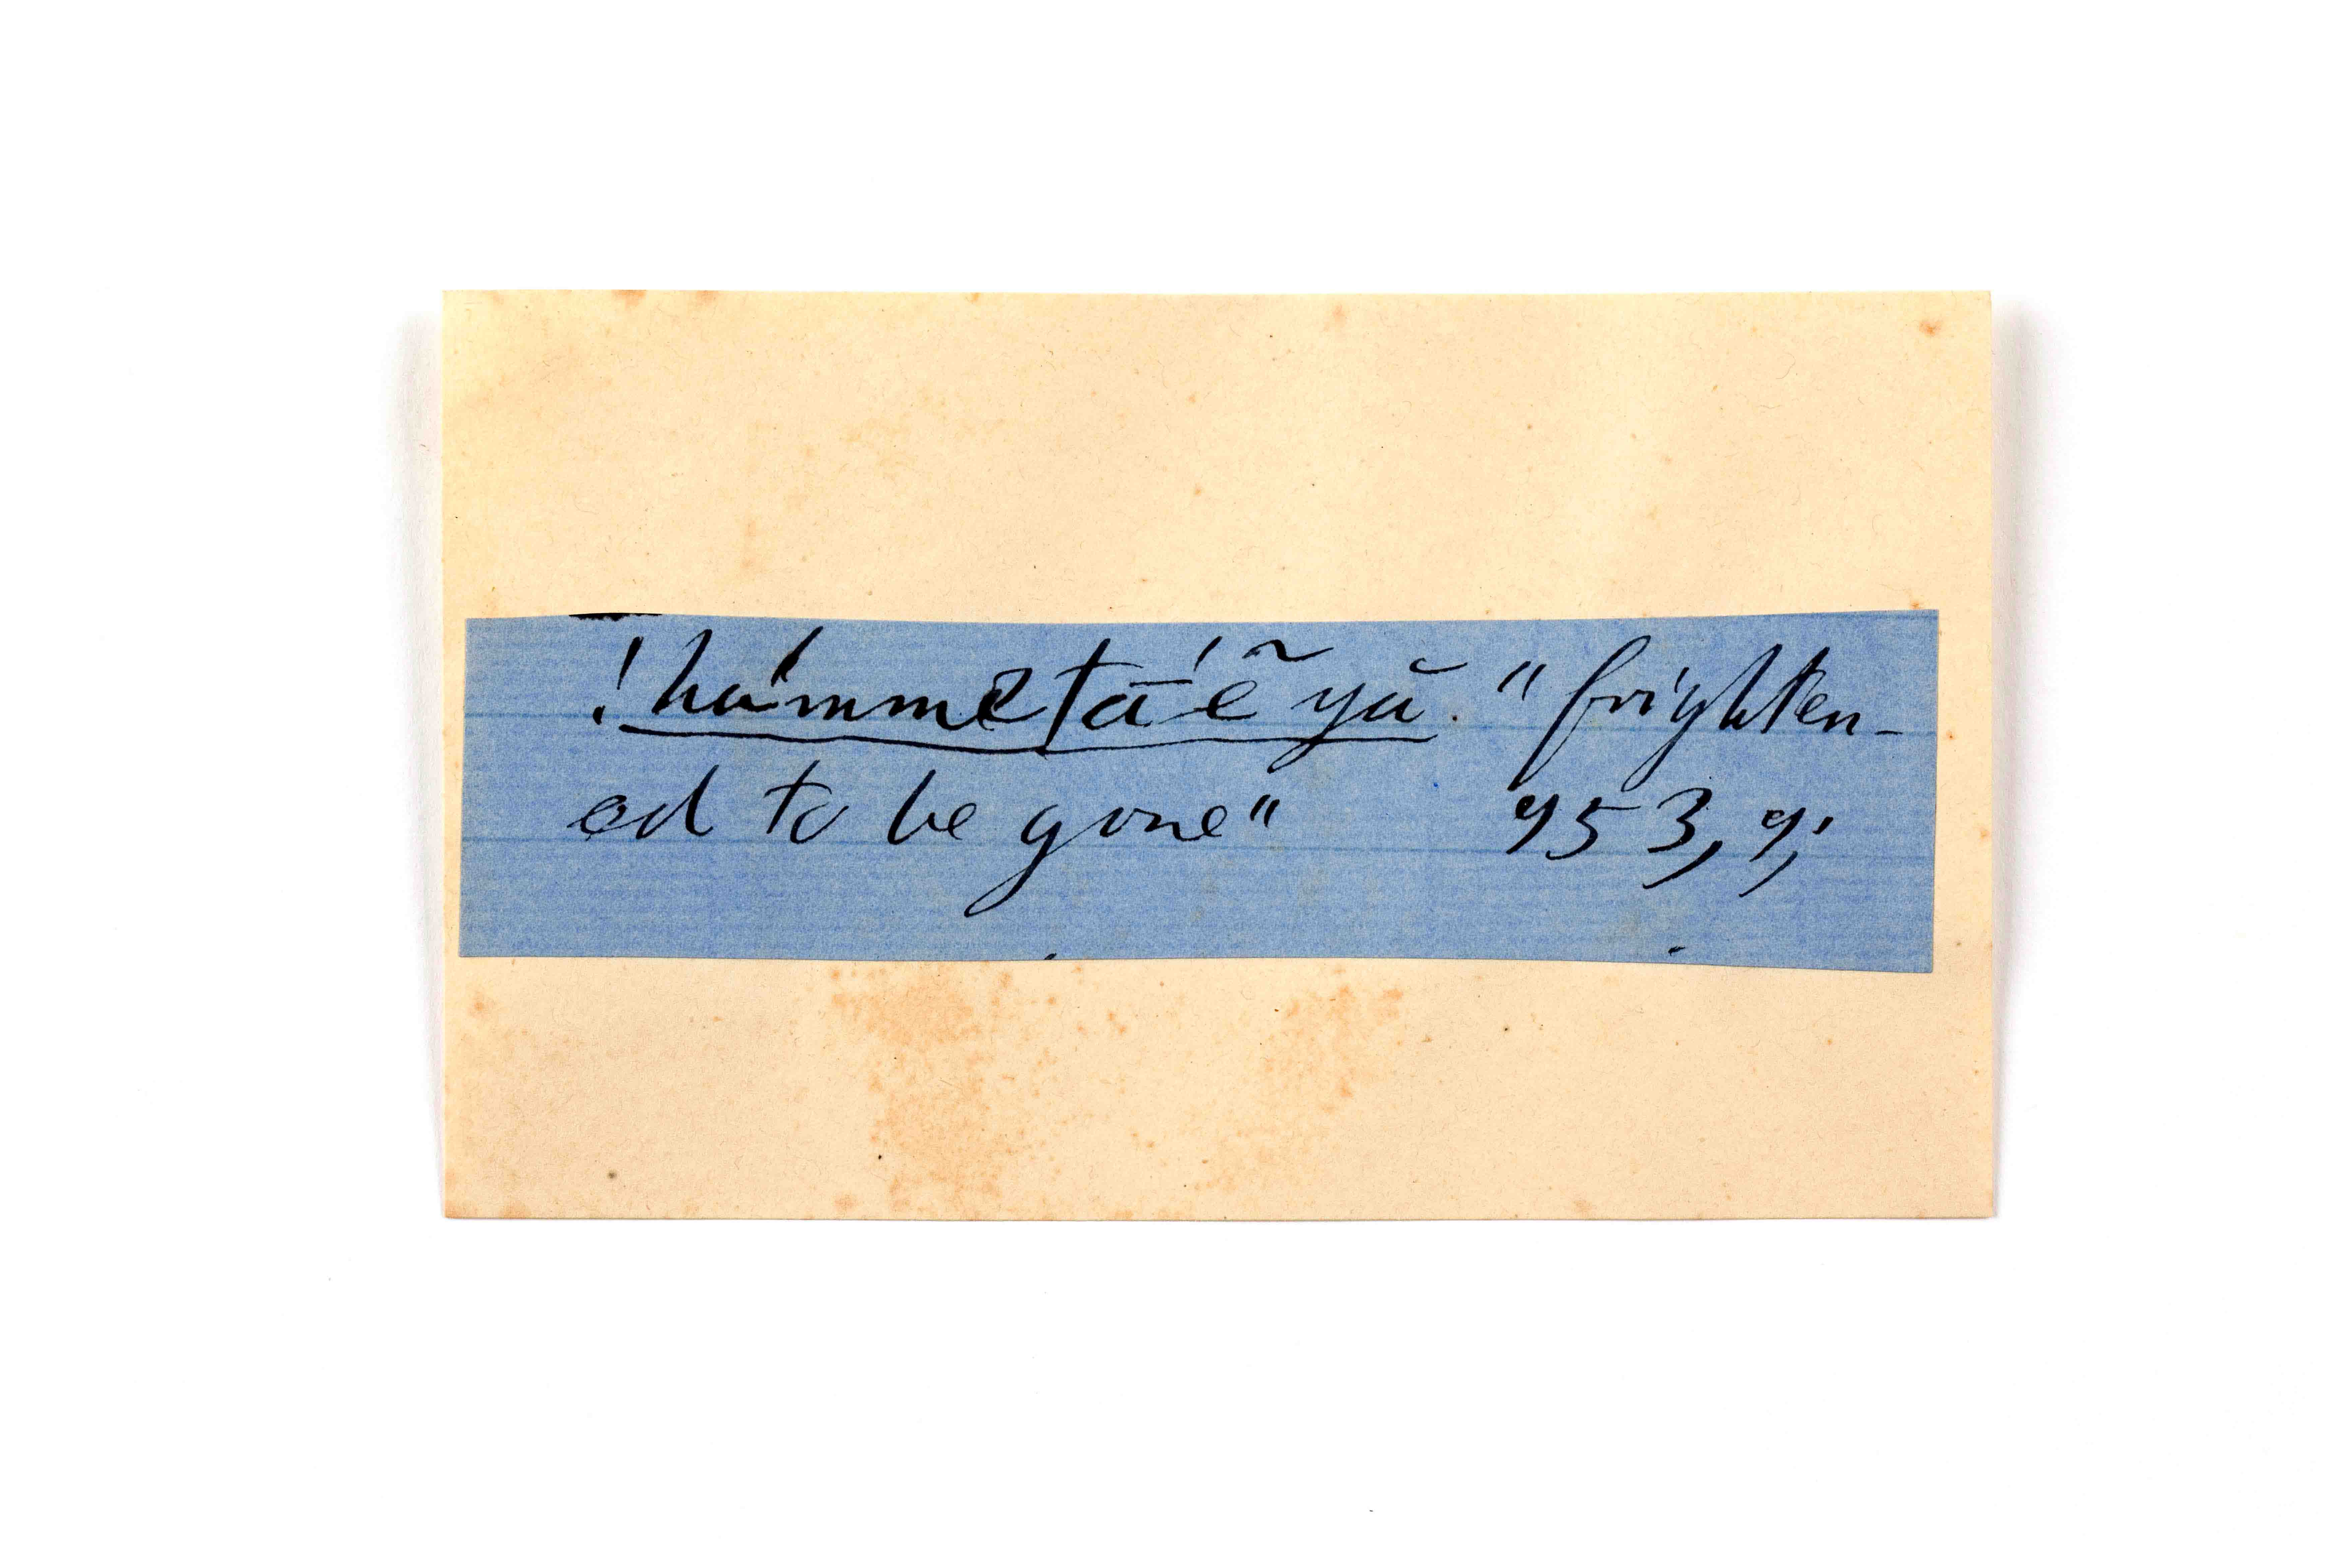 !hámmĕtā́'ẽ yă. "frighten-
ed to be gone" 953, 9;